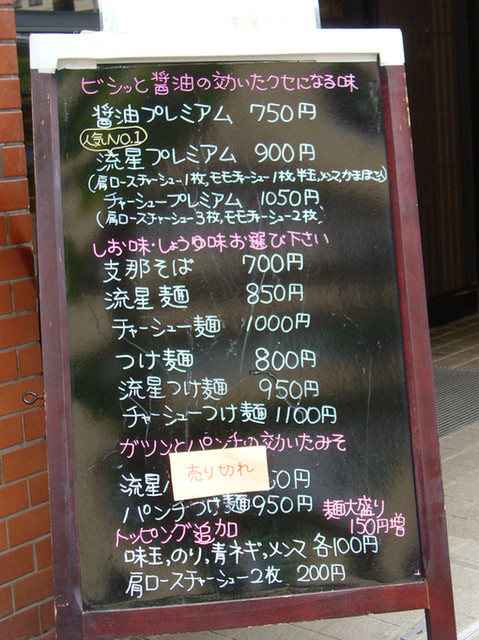 ビシッと醤油の効いたクセになる味
醤油プレミアム 750円
人気NO.1
流星プレミアム 900円
(肩ロースチャーシュー1枚,モモチャーシュー1枚,半玉,メンマ,かまぼこ)
チャーシュープレミアム 1050円
(肩ロースチャーシュー3枚,モモチャーシュー2枚)
しお味・しょうゆ味お選び下さい
支那そば 700円
流星麺 850円
チャーシュー麺 1000円
つけ麺 800円
流星つけ麺 950円
チャーシューつけ麺 1100円
ガツンとパンチの効いたみそ
売り切れ
流星 50円
パンチつけ麺 950円
麺大盛り
150円増
トッピング追加
味玉,のり,青ネギ,メンマ 各100円
肩ロースチャーシュー2枚 200円